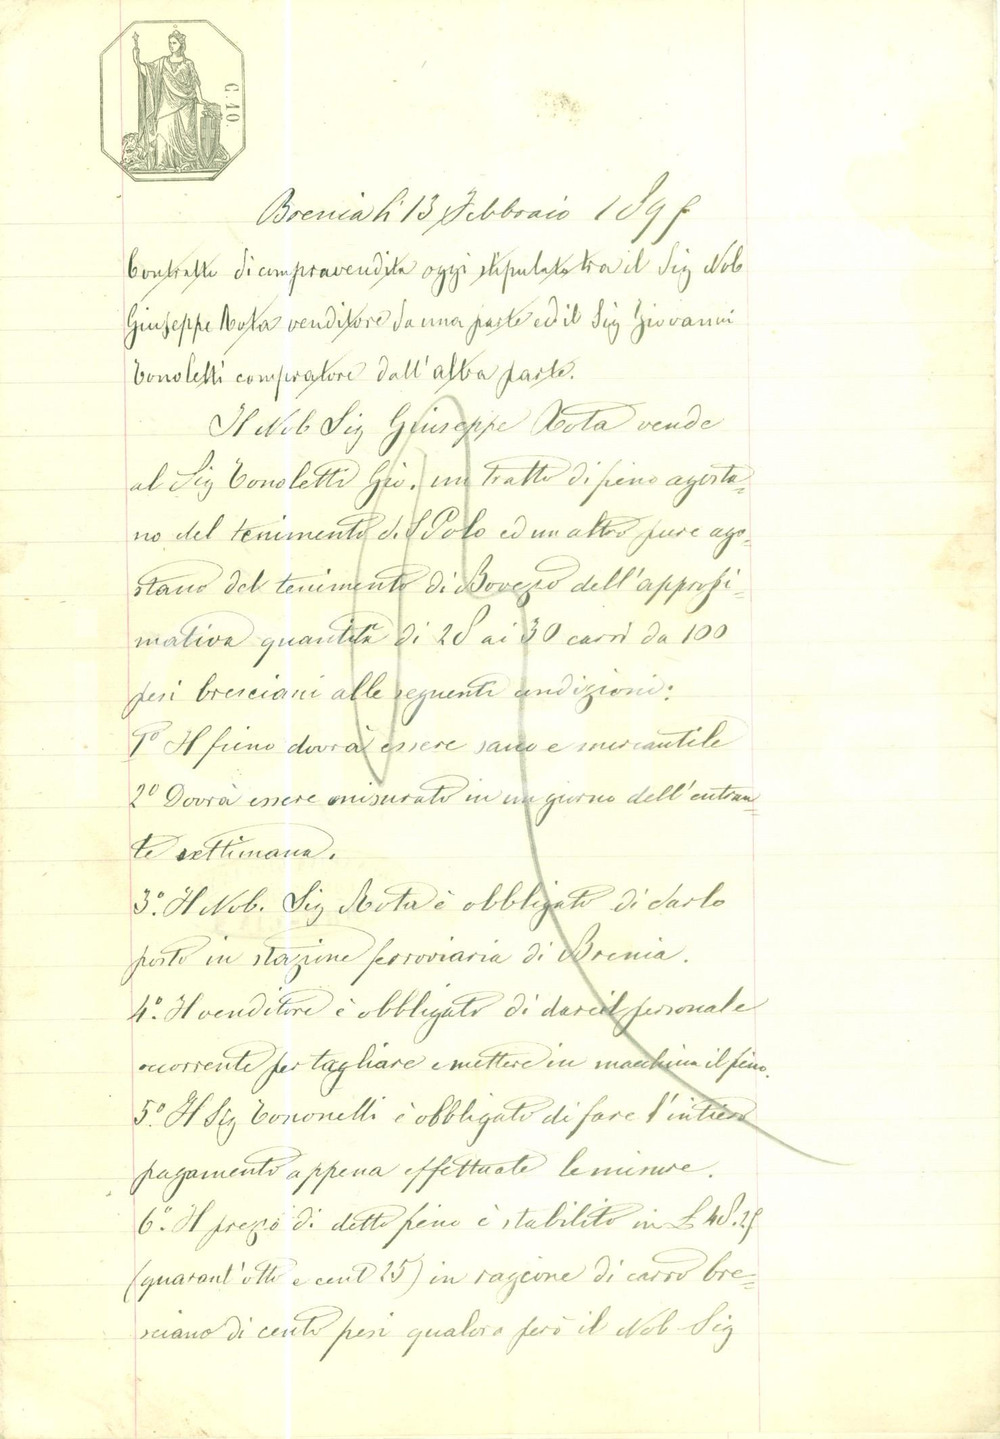 C. 10.
Brescia li 13 Febbraio 1895
Contratto di compravendita oggi stipulato tra il Sig Nob
Giuseppe Rota venditore da una parte ed il Sig Giovanni
Tonoletti compratore dall'altra parte.
Il Nob Sig Giuseppe Rota vende
al Sig Tonoletti Gio. un tratto di fieno agosta=
no del tenimento di S Polo ed un altro pure ago=
stano del tenimento di Bovezzo dell'approssi=
mativa quantità di 28 ai 30 carri da 100
pesi bresciani alle seguenti condizioni:
1º Il fieno dovrà essere sano e mercantile
2º Dovrà essere misurato in un giorno dell'entran=
te settimana.
3º. Il Nob. Sig Rota è obbligato di darlo
posto in stazione ferroviaria di Brescia.
4º. Il venditore è obbligato di dare il personale
occorrente per tagliare e mettere in macchina il fieno.
5º. Il Sig Tononelli è obbligato di fare l'intiero
pagamento appena effettuate le misure.
6º. Il prezzo di detto fieno è stabilito in £ 48.25
(quarant'otto e cent 25) in ragione di carro bre=
sciano di cento pesi qualora però il Nob Sig